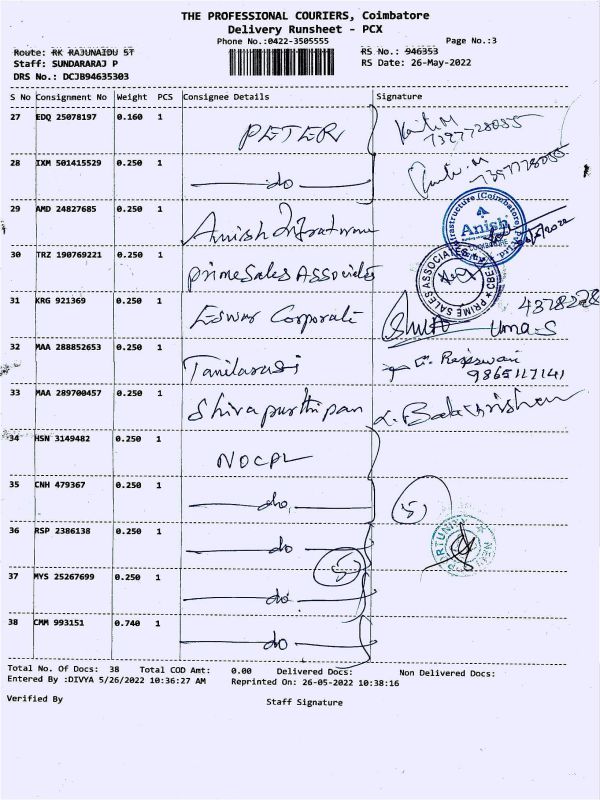 THE PROFESSIONAL COURIERS, Coimbatore
Delivery Runsheet - PCX
Phone No.:0422-3505555 Page No.:3
Route: RK RAJUNAIDU ST RS No.: 946353
Staff: SUNDARARAJ P RS Date: 26-May-2022
DRS No.: DCJB94635303
S No Consignment No Weight PCS Consignee Details Signature
27 EDQ 25078197 0.160 1 PETER 7397728055
28 IXM 501415529 0.250 1 do 7397728055
29 AMD 24827685 0.250 1 Anish Anish
30 TRZ 190769221 0.250 1 Prime Sales Associates PRIME SALES ASSOCIATES
31 KRG 921369 0.250 1 Eswar Corporate Uma-S
32 MAA 288852653 0.250 1 Tamilarasi Rajeswari
9865117141
33 MAA 289700457 0.250 1 Shivapurthipan
34 HSN 3149482 0.250 1 NOCPL
35 CNH 479367 0.250 1 do, 5
36 RSP 2386138 0.250 1 do
5
37 MYS 25267699 0.250 1 do
38 CMM 993151 0.740 1 do
Total No. Of Docs: 38 Total COD Amt: 0.00 Delivered Docs: Non Delivered Docs:
Entered By :DIVYA 5/26/2022 10:36:27 AM Reprinted On: 26-05-2022 10:38:16
Verified By Staff Signature